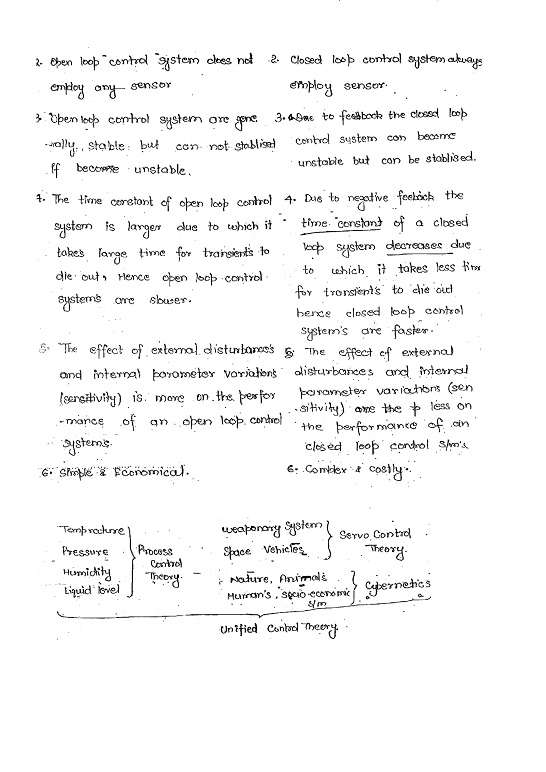 2. Open loop control system does not
employ any sensor
3. Open loop control system are gene
-rally, stable but can not stablised
If become unstable.
4. The time constant of open loop control
system is larger due to which it
takes large time for transients to
die out, Hence open loop control
systems are slower.
5. The effect of external disturbances
and internal parameter variations
(sensitivity) is more on the perfor
-mance of an open loop control
systems.
6. Simple & Economical.
2. Closed loop control system always
employ sensor.
3. Due to feedback the closed loop
control system can become
unstable but can be stablised.
4. Due to negative feeback the
time constant of a closed
loop system decreases due
to which it takes less time
for transients to die out
hence closed loop control
system's are faster.
5. The effect of external
disturbances and internal
parameter variations (sen
-sitivity) are the less on
the performance of an
closed loop control s/m's
6. Complex & costly.
Temprature
Pressure
Humidity
Liquid level
Process
Control
Theory.
weaponary System
Space Vehicles
Servo Control
Theory.
Nature, Animals
Human's, socio-economic
s/m
Cybernetics
Unified Control Theory